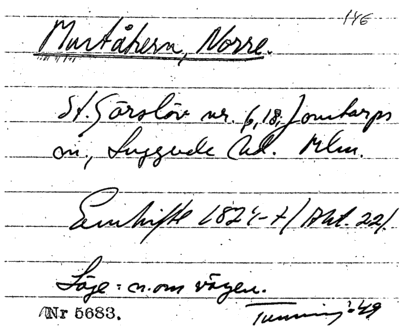 146
Murtåkern, Norre.
St. Görslöv nr. 6, 18, Jonstorps
sn, Luggude hd. Mlm.
Enskifte 1824-7 (Akt. 22).
Läge: n. om vägen.
Nr 5683.